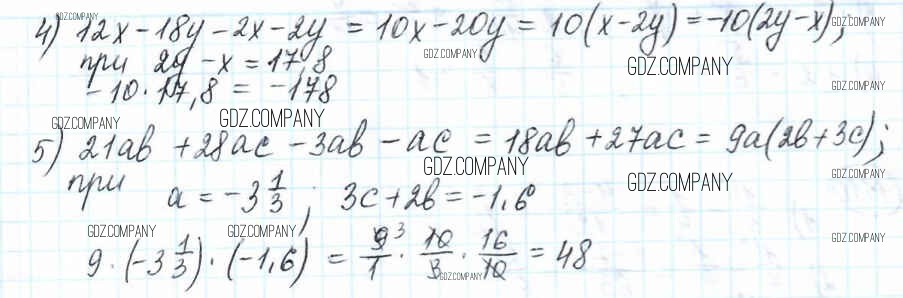 GDZ.COMPANY
4) 12x - 18y - 2x - 2y = 10x - 20y = 10(x - 2y) = -10(2y - x);
GDZ.COMPANY
GDZ.COMPANY
при 2y - x = 17,8
GDZ.COMPANY
-10 · 17,8 = -178
GDZ.COMPANY
GDZ.COMPANY
GDZ.COMPANY
5) 21ab + 28ac - 3ab - ac = 18ab + 27ac = 9a(2b + 3c);
GDZ.COMPANY
GDZ.COMPANY
GDZ.COMPANY
при a = -3 1/3; 3c + 2b = -1,6
GDZ.COMPANY
GDZ.COMPANY
GDZ.COMPANY
9 · (-3 1/3) · (-1,6) = 9³/1 · 10/3 · 16/10 = 48
GDZ.COMPANY